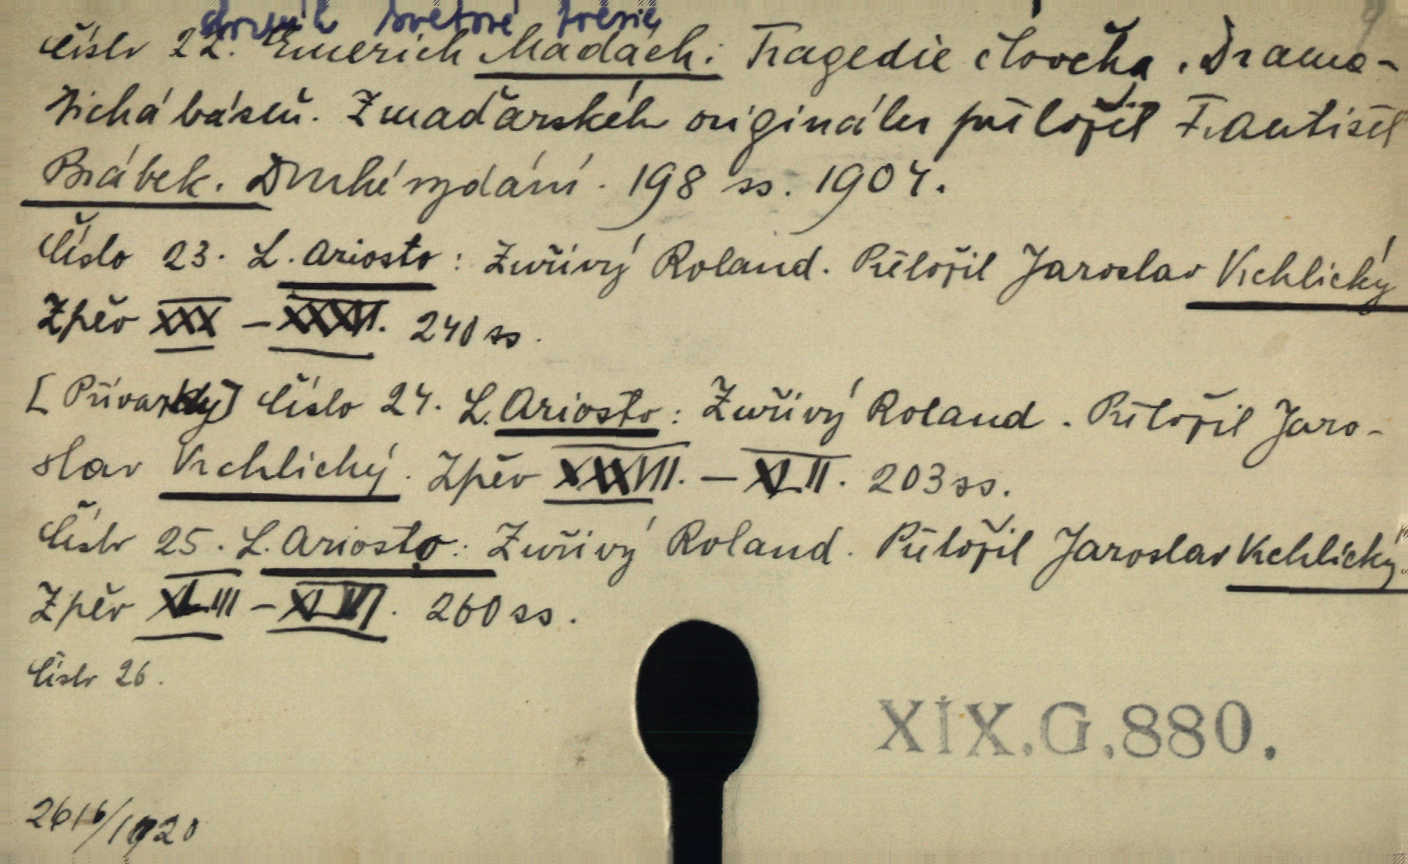 sborník světové poesie
9
Číslo 22. Emerich Madách: Tragedie člověka. Drama-
tická báseň. Z maďarského originálu přeložil František
Brábek. Druhé vydání. 198 ss. 1904.
Číslo 23. L. Ariosto: Zuřivý Roland. Přeložil Jaroslav Vrchlický
Zpěv XXX – XXXVI. 240 ss.
[Přívazky] Číslo 24. L. Ariosto: Zuřivý Roland. Přeložil Jaro-
slav Vrchlický. Zpěv XXXVII. – XLII. 203 ss.
Číslo 25. L. Ariosto: Zuřivý Roland. Přeložil Jaroslav Vrchlický.
Zpěv XLIII – XLVI. 260 ss.
Číslo 26.
XIX.G.880.
2616/1920